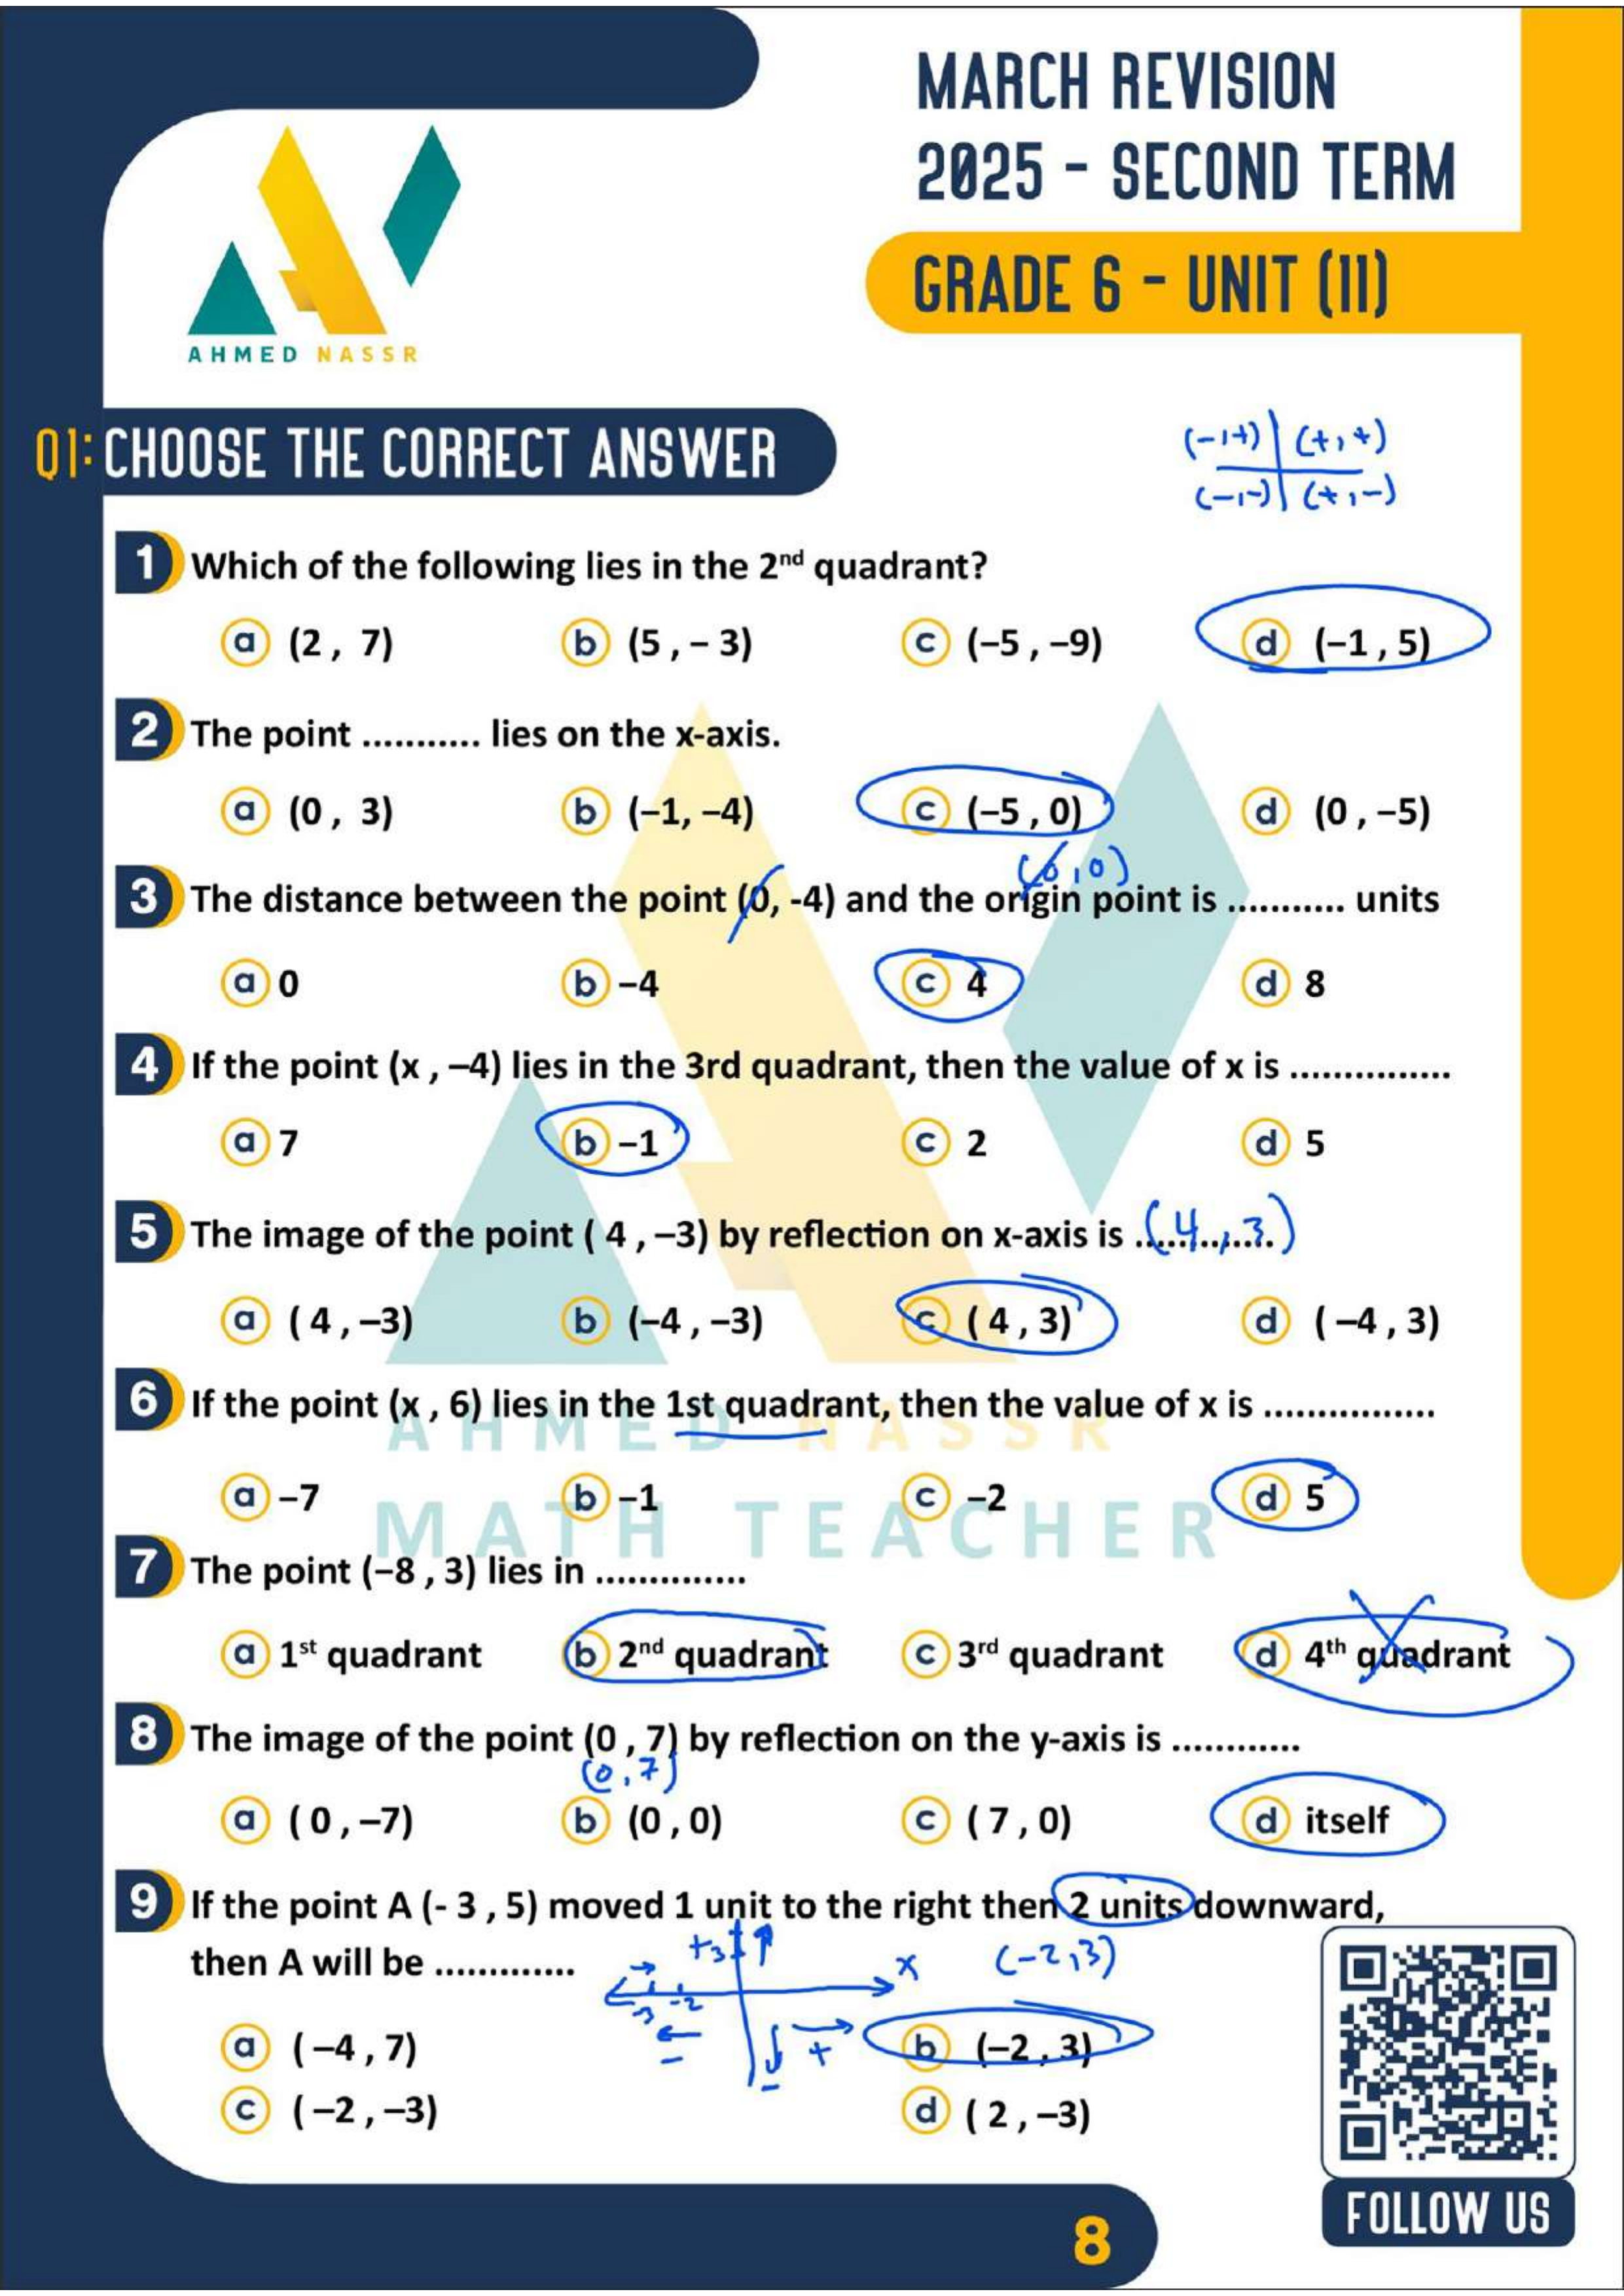 MARCH REVISION
2025 - SECOND TERM
GRADE 6 - UNIT (II)
AHMED NASSR
Q1: CHOOSE THE CORRECT ANSWER
(-,+) (+,+)
(-,-) (+,-)
1 Which of the following lies in the 2nd quadrant?
a (2 , 7) b (5 , – 3) c (–5 , –9) d (–1 , 5)
2 The point ........... lies on the x-axis.
a (0 , 3) b (–1, –4) c (–5 , 0) d (0 , –5)
(0,0)
3 The distance between the point (0, -4) and the origin point is ........... units
a 0 b –4 c 4 d 8
4 If the point (x , –4) lies in the 3rd quadrant, then the value of x is ...............
a 7 b –1 c 2 d 5
5 The image of the point ( 4 , –3) by reflection on x-axis is ............. (4,3)
a ( 4 , –3) b (–4 , –3) c ( 4 , 3) d ( –4 , 3)
6 If the point (x , 6) lies in the 1st quadrant, then the value of x is ................
AHMED NASSR
a –7 b –1 c –2 d 5
MATH TEACHER
7 The point (–8 , 3) lies in ..............
a 1st quadrant b 2nd quadrant c 3rd quadrant d 4th quadrant
8 The image of the point (0 , 7) by reflection on the y-axis is ............
(0,7)
a ( 0 , –7) b (0 , 0) c ( 7 , 0) d itself
9 If the point A (- 3 , 5) moved 1 unit to the right then 2 units downward,
then A will be ............. +3 x (-2,3)
-3 -2
a ( –4 , 7) - - + b (–2 , 3)
c ( –2 , –3) d ( 2 , –3)
FOLLOW US
8